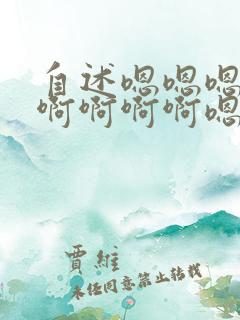 自述嗯嗯嗯
啊啊啊啊嗯
贾维
未经同意禁止转载